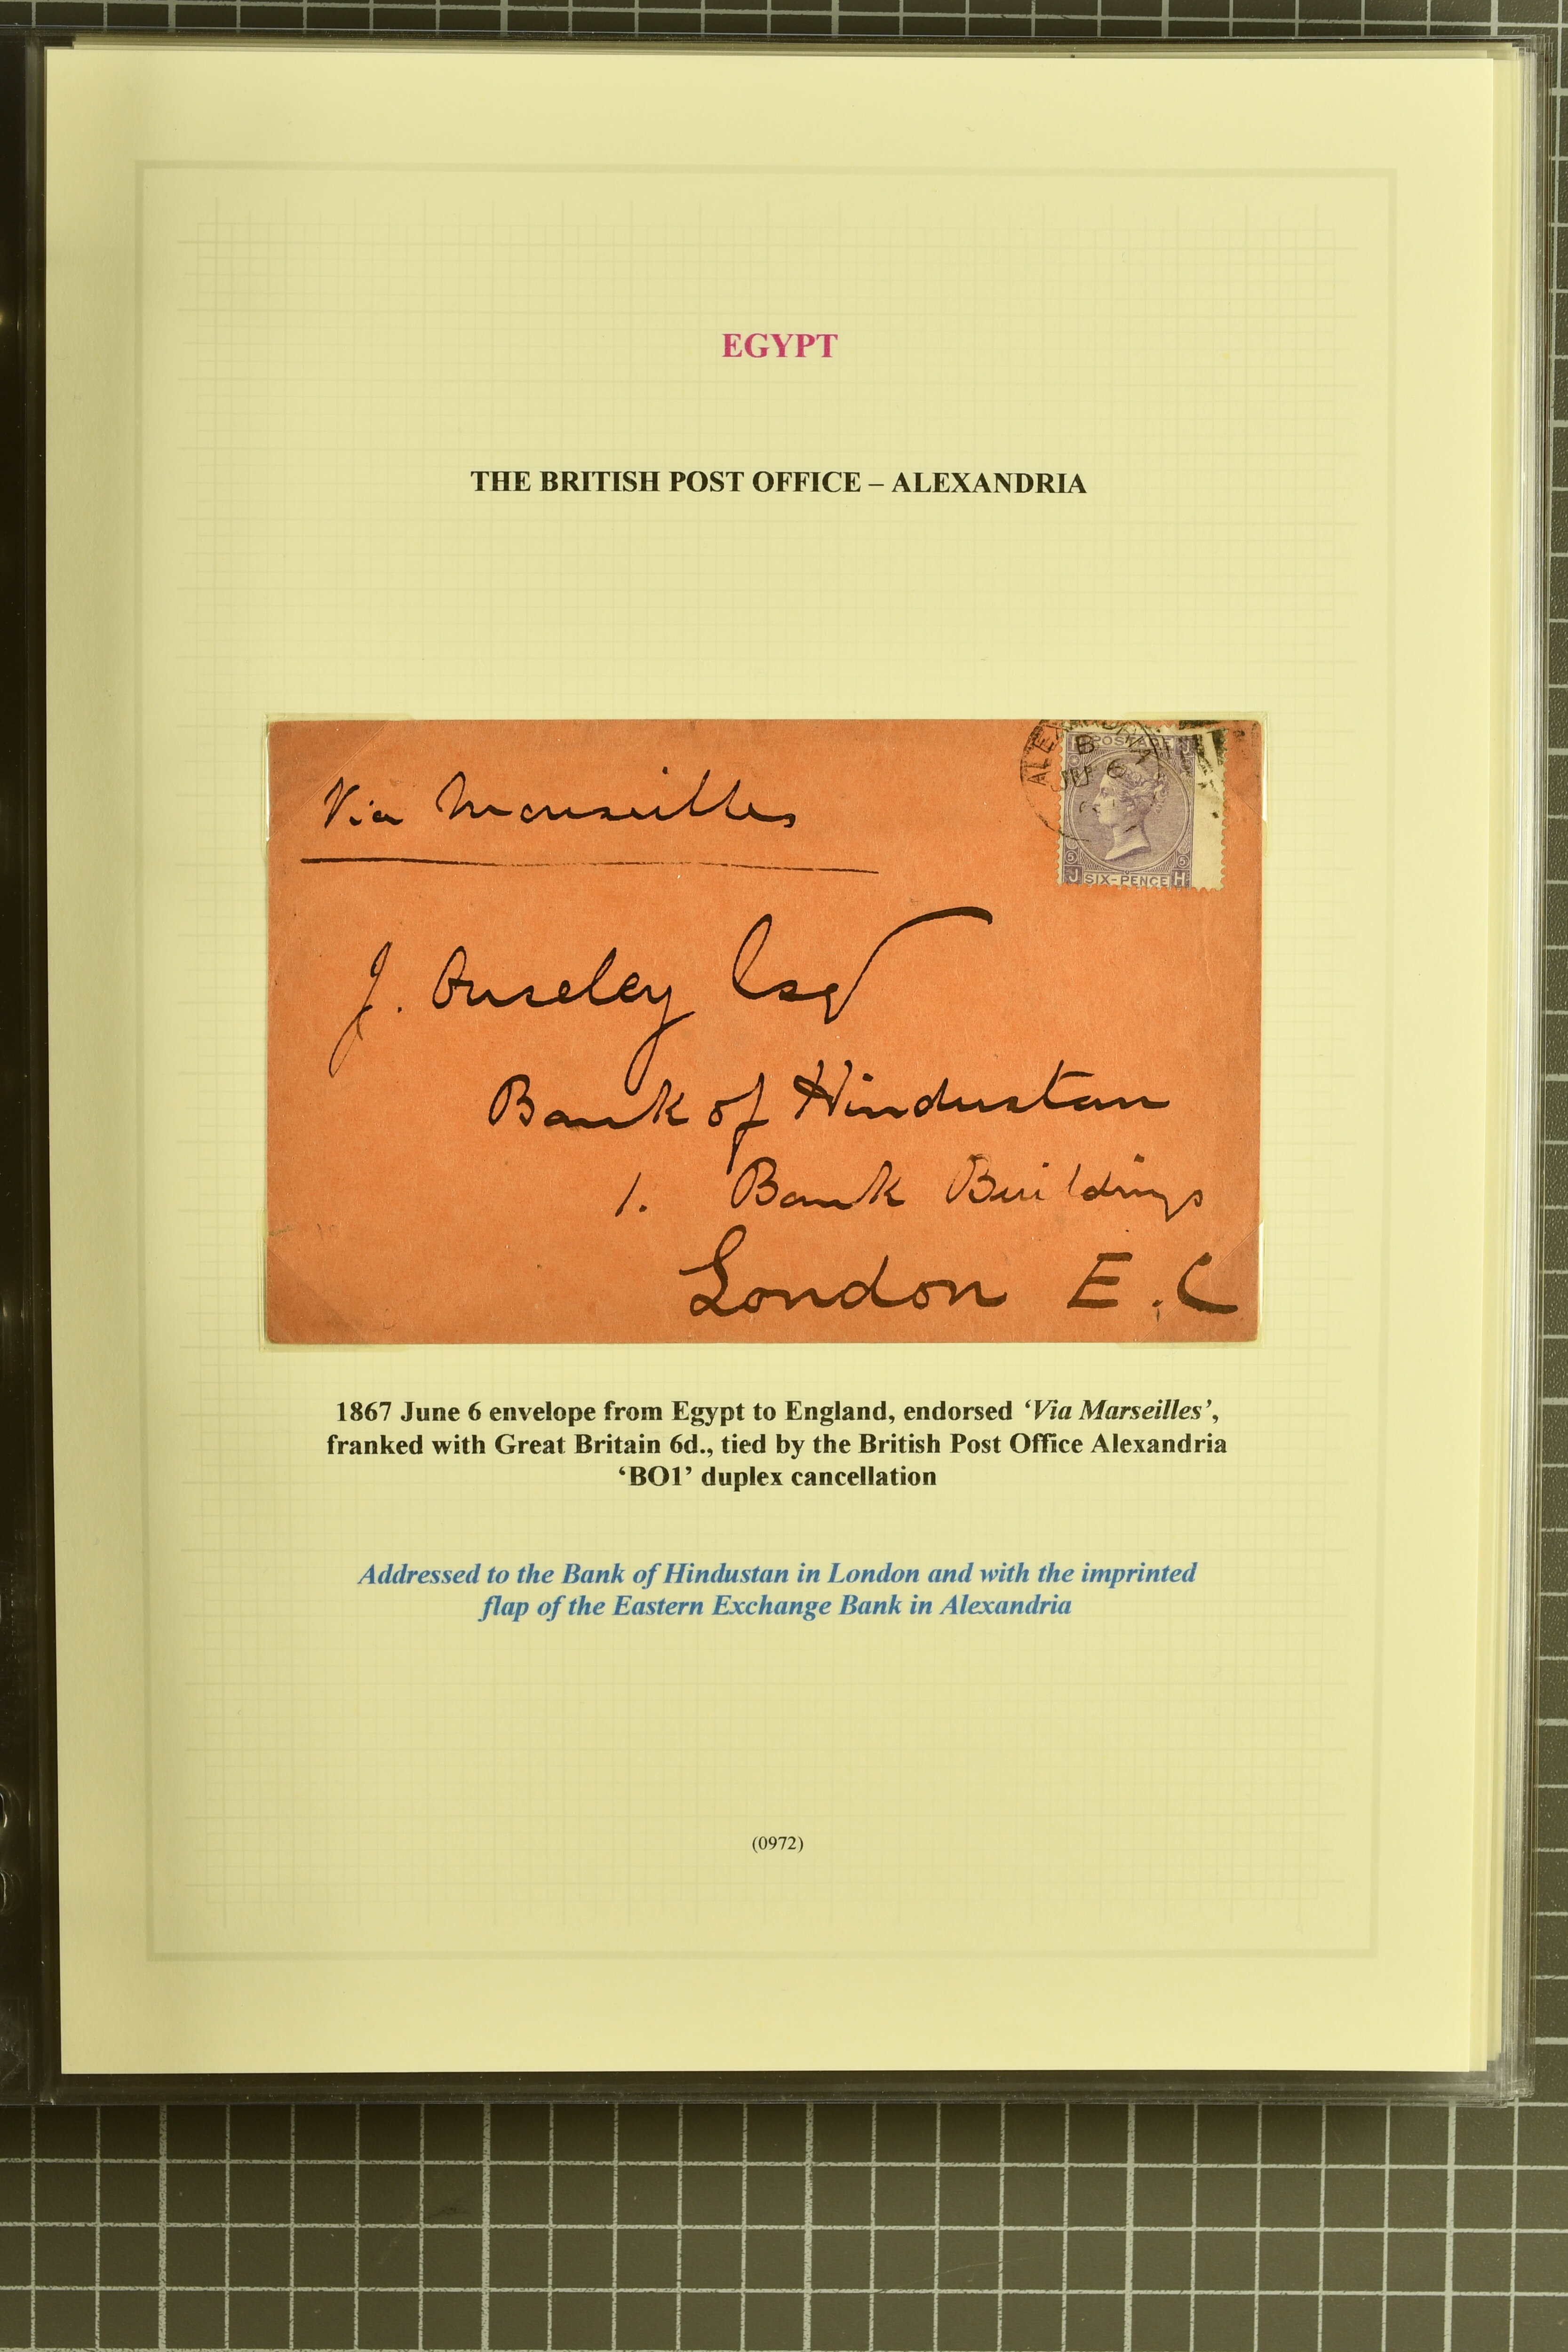 EGYPT
THE BRITISH POST OFFICE – ALEXANDRIA
ALEXANDRIA
B
JU 6
POSTAGE
5 5
J SIX-PENCE H
Via Marseilles
J. Ouseley Esq
Bank of Hindustan
1. Bank Buildings
London E.C
1867 June 6 envelope from Egypt to England, endorsed ‘Via Marseilles’,
franked with Great Britain 6d., tied by the British Post Office Alexandria
‘BO1’ duplex cancellation
Addressed to the Bank of Hindustan in London and with the imprinted
flap of the Eastern Exchange Bank in Alexandria
(0972)